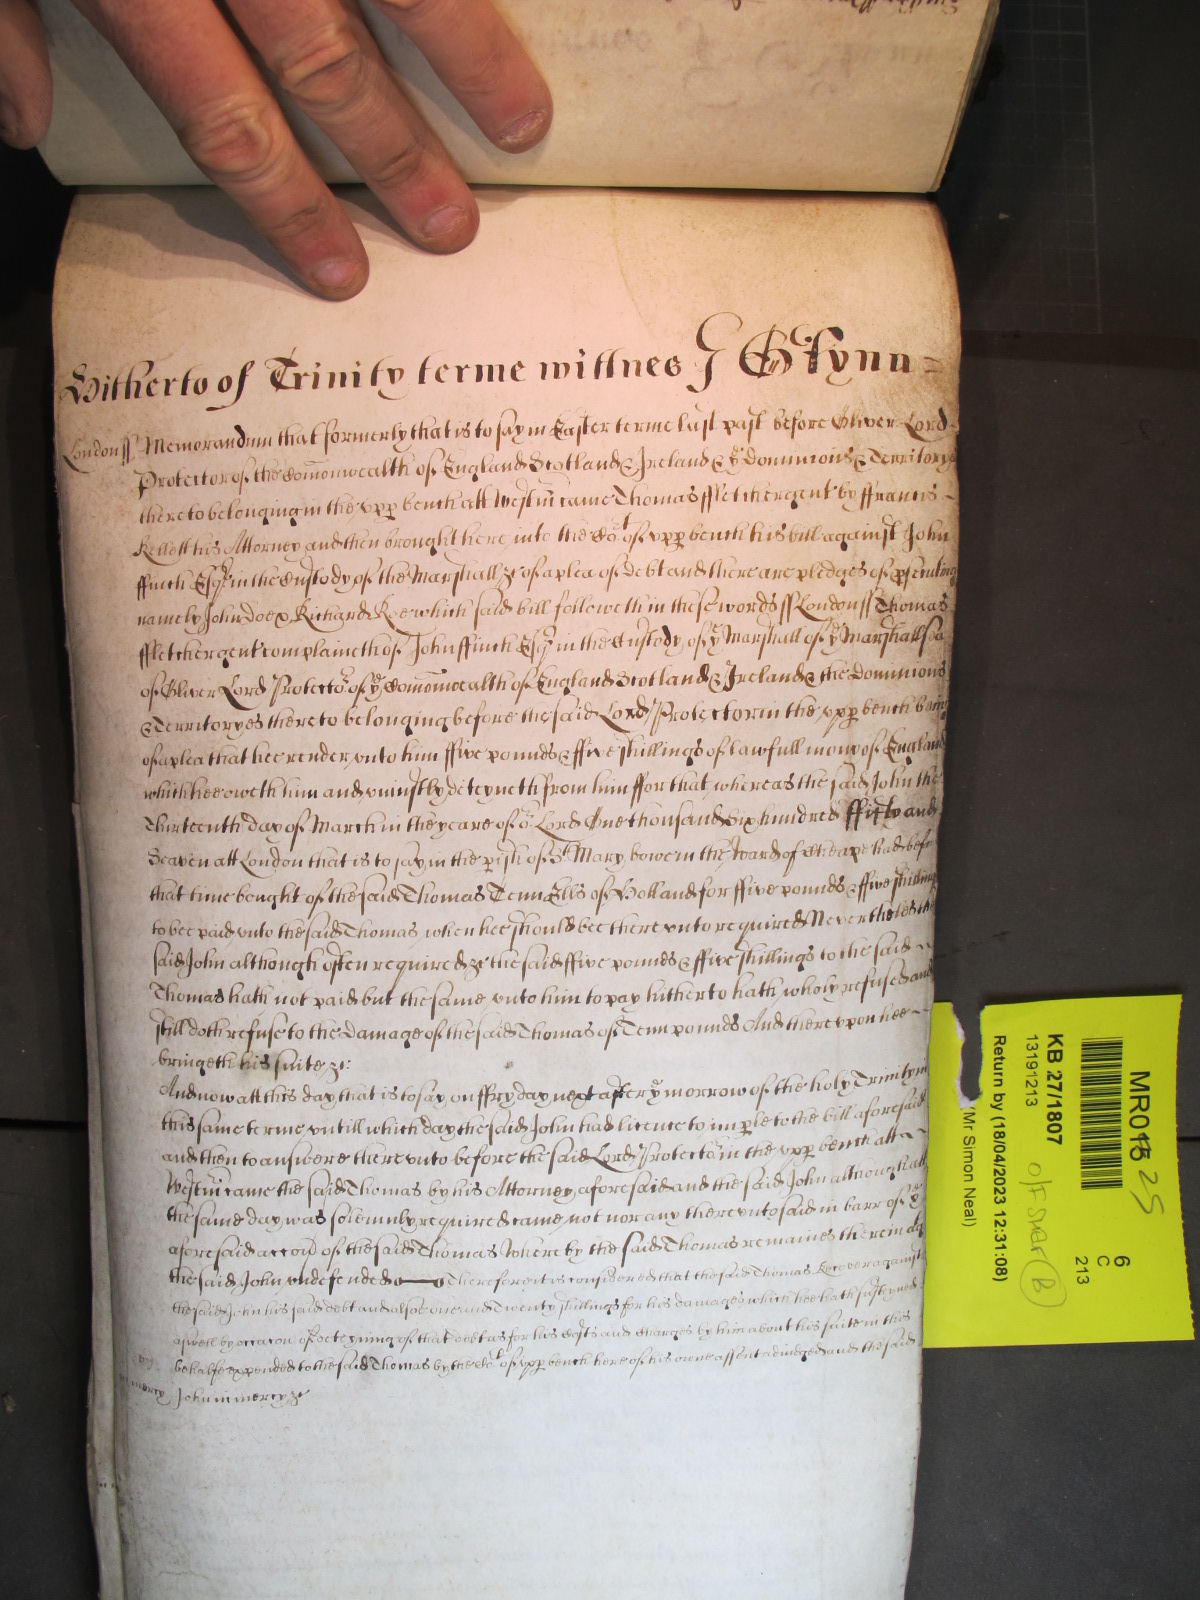 Hitherto of Trinity terme wittnes J Glynn
London ss Memorandum that formerly that is to say in Easter terme last past before Oliver Lord
Protector of the Comonwealth of England Scotland & Ireland & ye Dominions & Territoryes
thereto belonging in the upp bench att Westm came Thomas ffletcher gent by ffrancis
Kellett his Attorney and then brought here into the Cot of upp bench his bill against John
ffinch Esqr in the Custody of the Marshall &c of a plea of Debt and there are pledges of psenting
namely John Doe & Richard Roe which said bill followeth in these words ss London ss Thomas
ffletcher gent complaineth of John ffinch Esqr in the Custody of ye Marshall of ye Marshallsea
of Oliver Lord Protector of ye Comonwealth of England Scotland & Ireland & the Dominions
& Territoryes thereto belonging before the said Lord Protector in the upp bench being
of a plea that hee render unto him ffive pounds & ffive shillings of lawfull mony of England
which hee oweth him and uniustly deteyneth from him ffor that whereas the said John the
Thirteenth day of March in the yeare of or Lord One thousand Six hundred ffifty and
Seaven att London that is to say in the pish of St Mary bowe in the Ward of Cheape had before
that time bought of the said Thomas Tenn Ells of Holland for ffive pounds & ffive shillings
to bee paid unto the said Thomas when hee should bee thereunto required Neverthelesse the
said John although often required &c the said ffive pounds & ffive shillings to the said
Thomas hath not paid but the same unto him to pay hitherto hath wholy refused and
still doth refuse to the Damage of the said Thomas of Tenn pounds And thereupon hee
bringeth his suite &c
And now att this day that is to say on ffryday next after ye morrow of the holy Trinity in
this same terme untill which day the said John had licence to imple to the bill aforesaid
and then to answere thereunto before the said Lord Protector in the upp bench att
Westm came the said Thomas by his Attorney aforesaid and the said John although att
the same day was solemnly required came not nor any thereunto said in barr of ye
aforesaid accon of the said Thomas Whereby the said Thomas remaines therein agt
the said John undefended Therefore it is considered that the said Thomas Recover against
the said John his said debt and alsoe one and Twenty shillings for his damages which hee hath susteyned
aswell by occacon of deteyning of that debt as for his Costs and Charges by him about his suite in this
behalfe expended to the said Thomas by the Cot of upp bench here of his owne assent adiudged and the said
mercy John in mercy &c
MR018 25
6
C
213
KB 27/1807
13191213
Return by (18/04/2023 12:31:08)
(Mr Simon Neal)